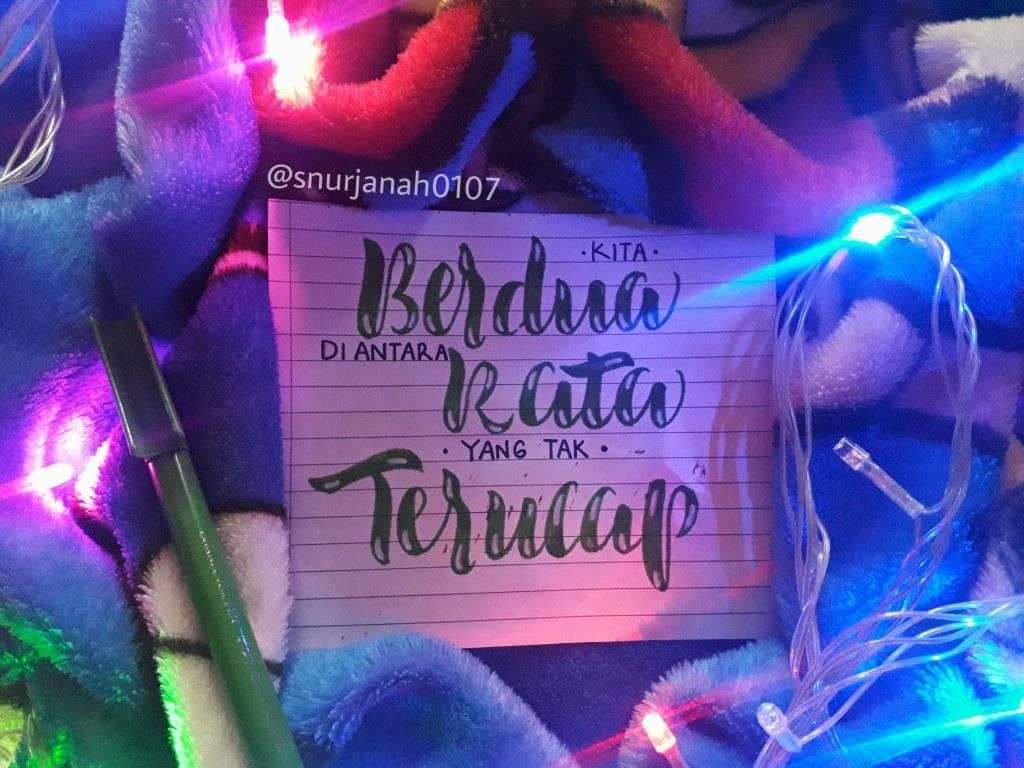 @snurjanah0107
·KITA·
Berdua
DI ANTARA
Kata
· YANG TAK ·
Terucap